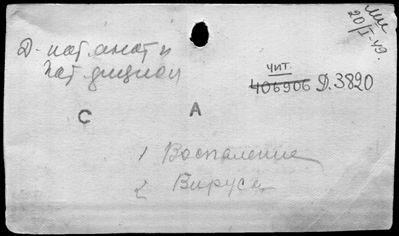 Ми
20/I-49.
Д. пат. анат. и
пат. физиол
чит.
406906 Д.3820
С А
1 Воспаление
2 Вируса